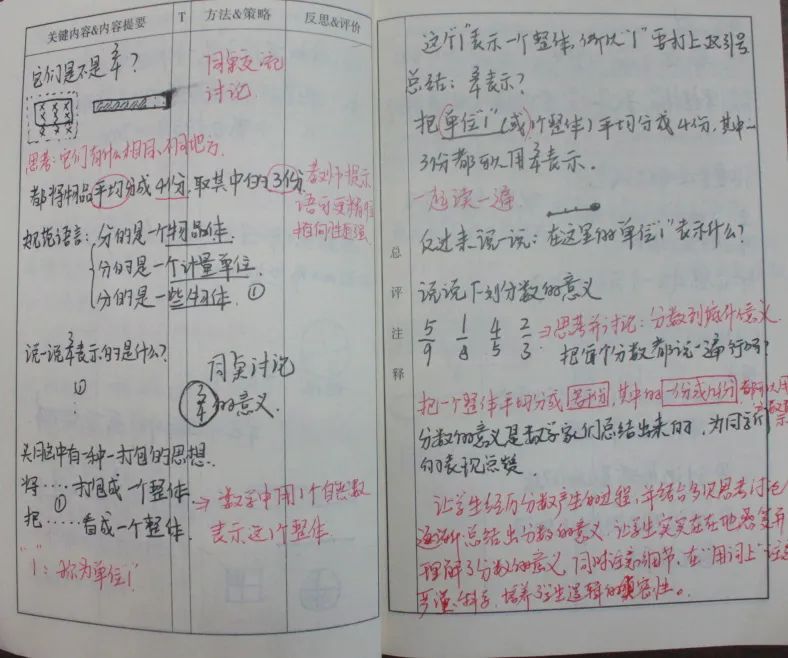 关键内容&内容提要 T 方法&策略 反思&评价
它们是不是3/4?
同桌交流
讨论
思考:它们有什么相同、不同地方
都将物品平均分成4份,取其中的3份
教师提示
语言要精准
指向性更强
规范语言:分的是一个物体.
分的是一个计量单位.
分的是一些物体. ①
说一说3/4表示的是什么?
①
同桌讨论
3/4的意义
头脑中有一种一打包的思想.
将……打包成一个整体
①
把……看成一个整体.
⇒数学中用1个自然数
表示这个整体
“1”:称为单位“1”
总评注释
这个“1”表示一个整体,所以“1”要打上双引号
总结:3/4表示?
把单位“1”(或1个整体)平均分成4份,其中
3份都可以用3/4表示.
一起读一遍
反过来说一说:在这里的单位“1”表示什么?
说说下列分数的意义
5/9 1/8 4/5 2/3 ⇒思考并讨论:分数到底什么意义
把每个分数都说一遍行吗?
把一个整体平均分成若干份,其中的一份或几份都可以用
分数表示
分数的意义是数学家们总结出来的,为同学们
的表现点赞
让学生经历分数产生的过程,并结合多次思考讨论
逐渐总结出分数的意义,让学生实实在在地感受并
理解了分数的意义,同时注意细节,在“用词上”注意
严谨、科学,培养学生逻辑的缜密性。